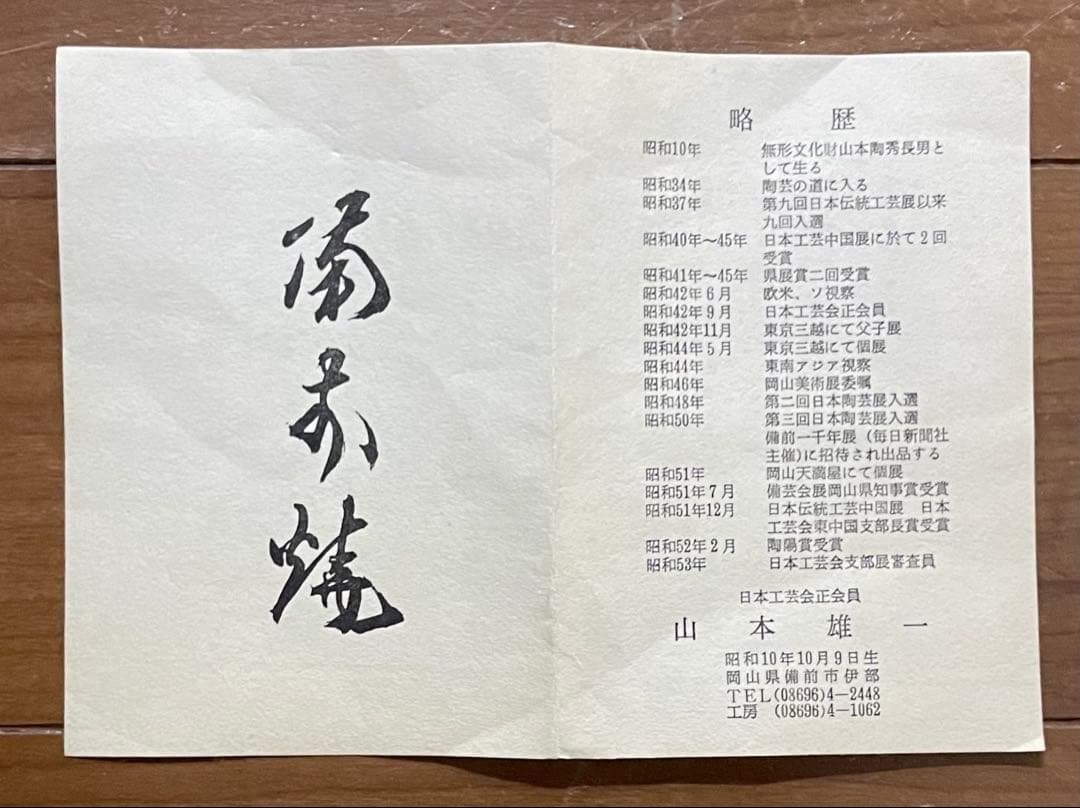 備前焼
略歴
昭和10年 無形文化財山本陶秀長男と
して生る
昭和34年 陶芸の道に入る
昭和37年 第九回日本伝統工芸展以来
九回入選
昭和40年〜45年 日本工芸中国展に於て2回
受賞
昭和41年〜45年 県展賞二回受賞
昭和42年6月 欧米、ソ視察
昭和42年9月 日本工芸会正会員
昭和42年11月 東京三越にて父子展
昭和44年5月 東京三越にて個展
昭和44年 東南アジア視察
昭和46年 岡山美術展委嘱
昭和48年 第二回日本陶芸展入選
昭和50年 第三回日本陶芸展入選
備前一千年展(毎日新聞社
主催)に招待され出品する
昭和51年 岡山天満屋にて個展
昭和51年7月 備芸会展岡山県知事賞受賞
昭和51年12月 日本伝統工芸中国展 日本
工芸会東中国支部長賞受賞
昭和52年2月 陶陽賞受賞
昭和53年 日本工芸会支部展審査員
日本工芸会正会員
山本雄一
昭和10年10月9日生
岡山県備前市伊部
TEL(08696)4—2448
工房 (08696)4—1062